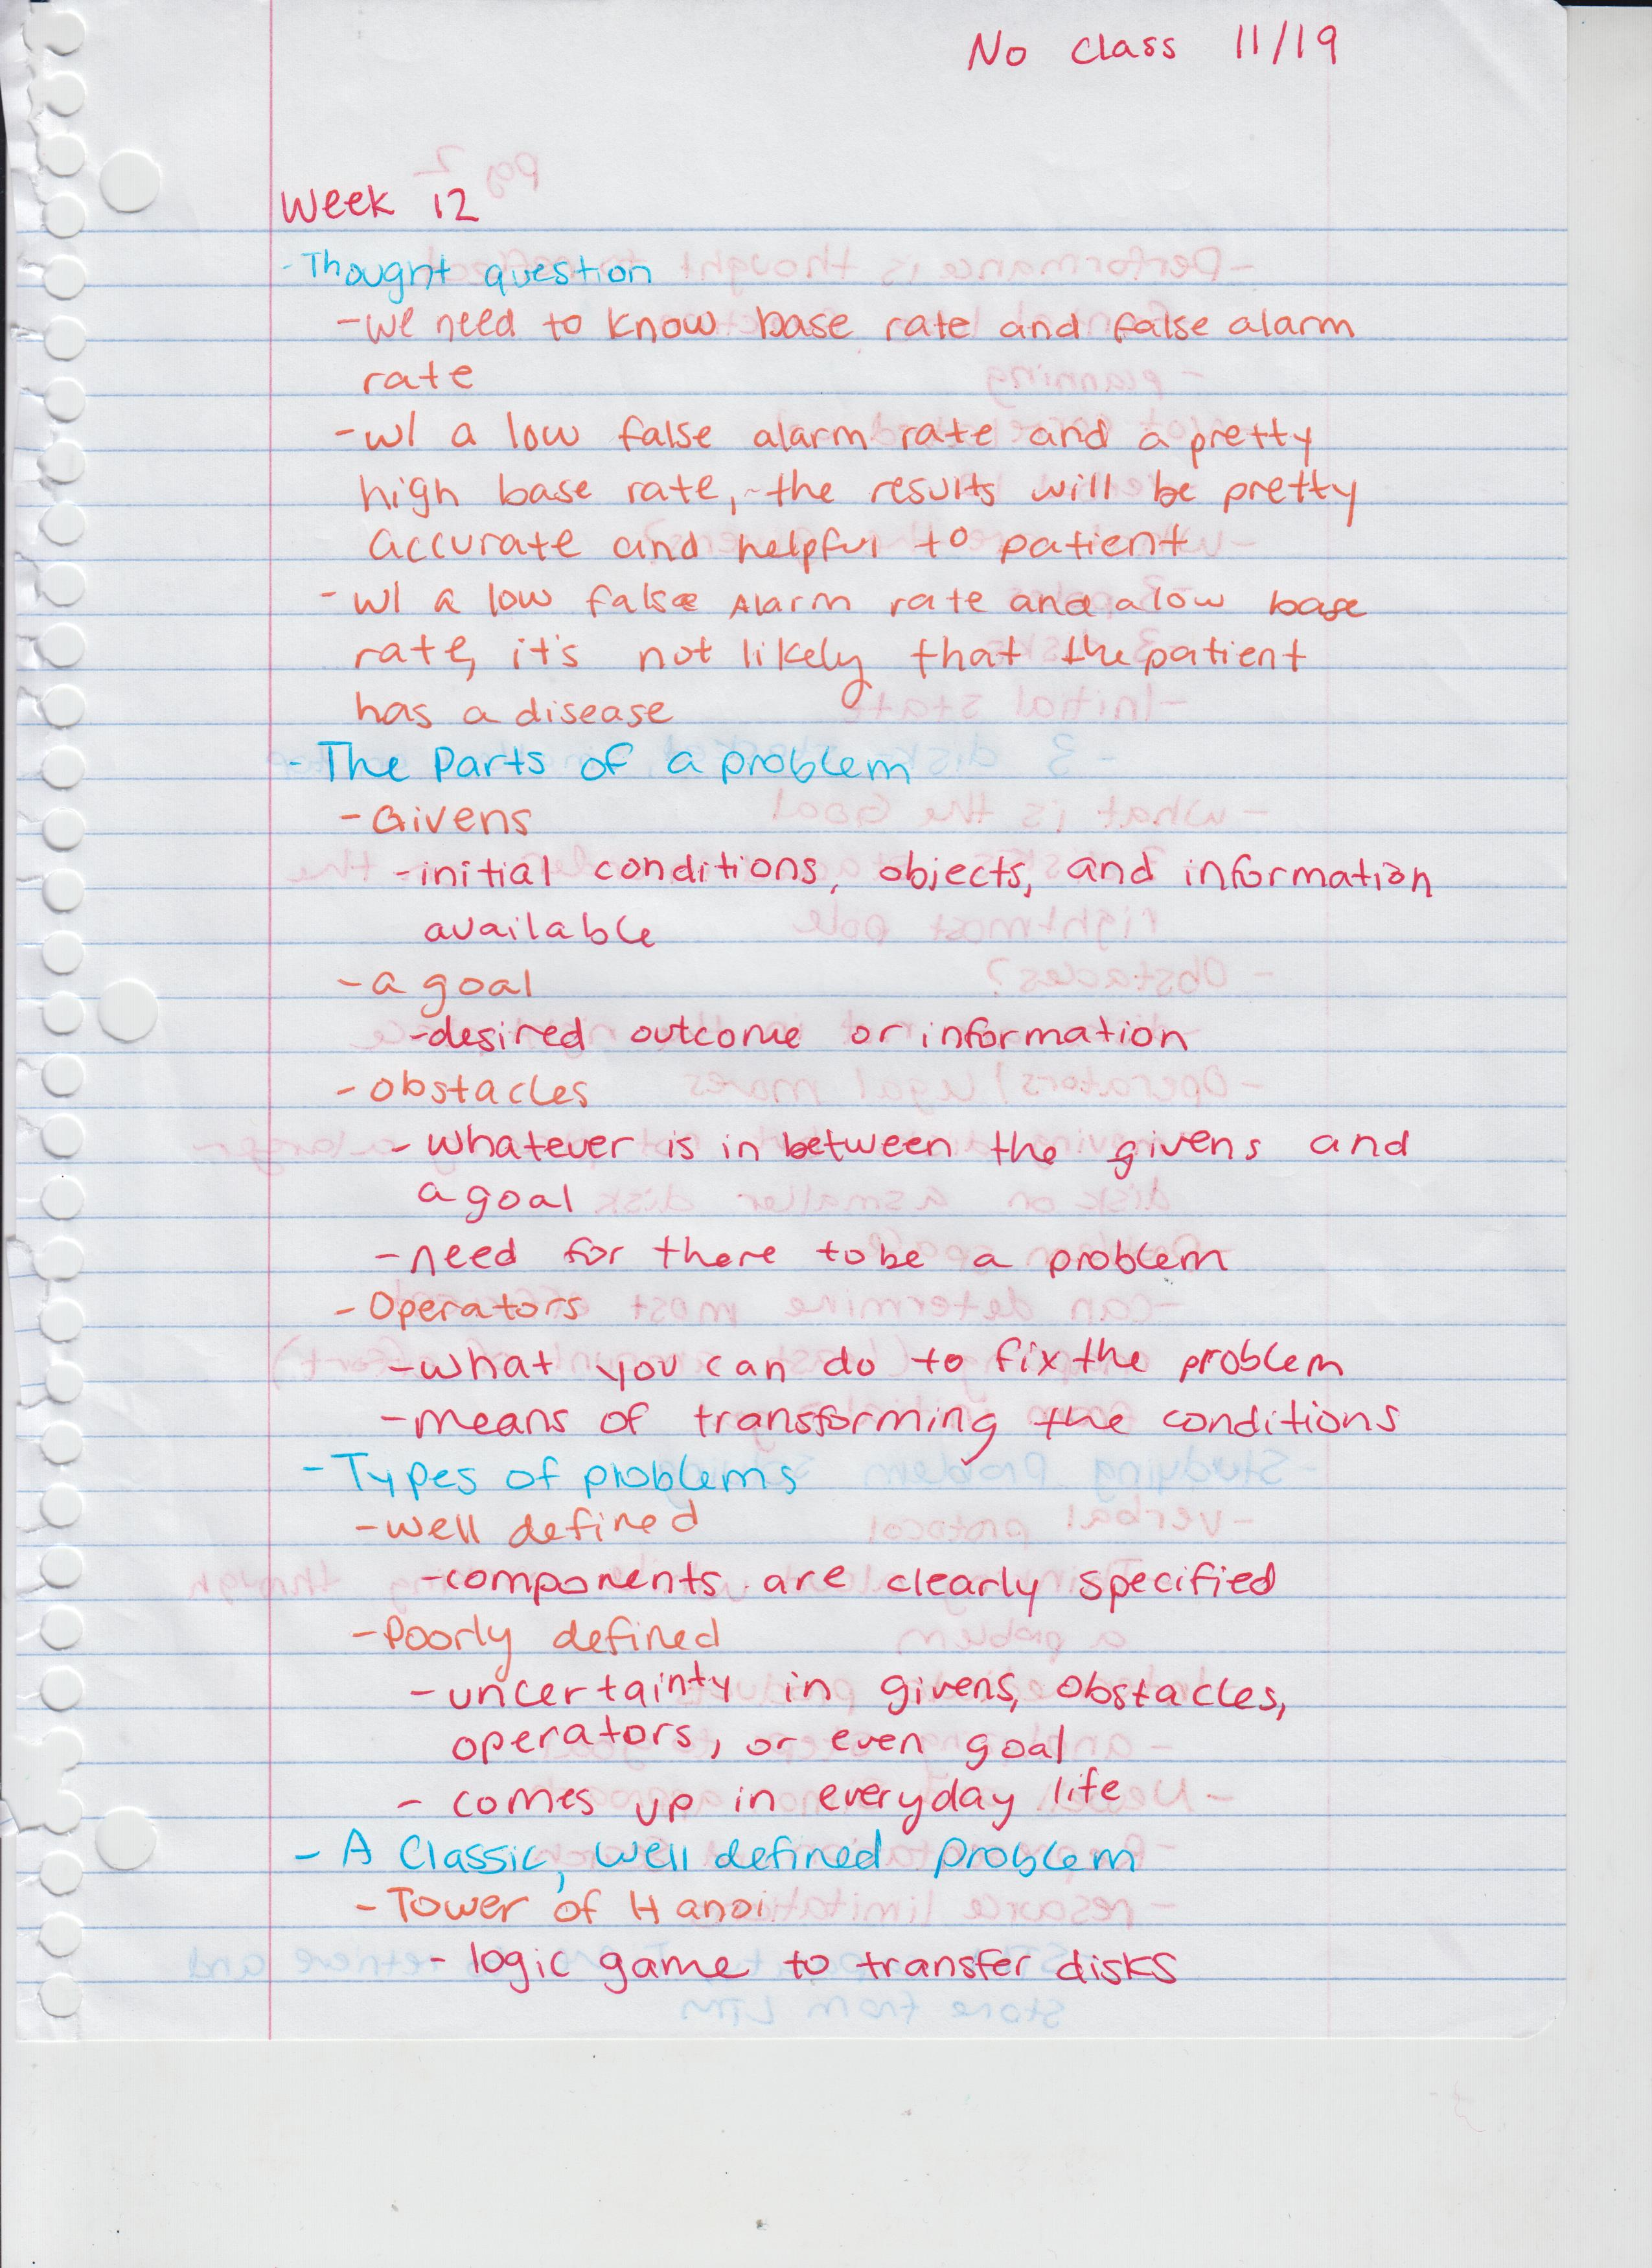 No class 11/19
Week 12
- Thought question
- we need to know base rate and false alarm
rate
- w/ a low false alarm rate and a pretty
high base rate, the results will be pretty
accurate and helpful to patient
- w/ a low false Alarm rate and a low base
rate, it's not likely that the patient
has a disease
- The Parts of a problem
- Givens
- initial conditions, objects, and information
available
- a goal
- desired outcome or information
- obstacles
- whatever is in between the givens and
a goal
- need for there to be a problem
- Operators
- what you can do to fix the problem
- means of transforming the conditions
- Types of problems
- well defined
- components are clearly specified
- Poorly defined
- uncertainty in givens, obstacles,
operators, or even goal
- comes up in everyday life
- A Classic, well defined problem
- Tower of Hanoi
- logic game to transfer disks